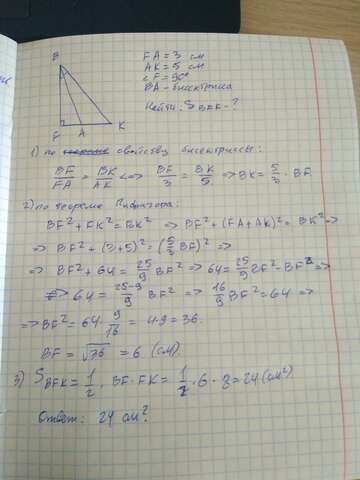 B
F A K
FA = 3 см
AK = 5 см
∠F = 90°
BA - биссектриса
Найти: S BFK - ?
1) по свойству биссектрисы:
BF/FA = BK/AK <=> BF/3 = BK/5 => BK = 5/3 · BF
2) по теореме Пифагора:
BF² + FK² = BK² => BF² + (FA + AK)² = BK² =>
=> BF² + (3+5)² = (5/3 BF)² =>
=> BF² + 64 = 25/9 BF² => 64 = 25/9 BF² - BF² =>
=> 64 = 25-9/9 BF² => 16/9 BF² = 64 =>
=> BF² = 64 · 9/16 = 4·9 = 36.
BF = √36 = 6 (см)
3) S BFK = 1/2 · BF · FK = 1/2 · 6 · 8 = 24 (см²)
Ответ: 24 см².